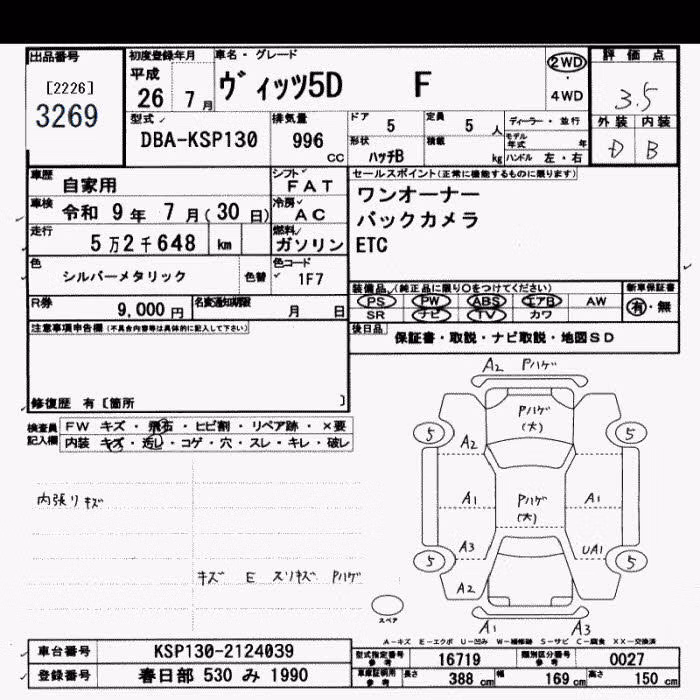 出品番号
[2226]
3269
初度登録年月
平成
26 7 月
車名・グレード
ヴィッツ5D F
2WD
・
4WD
評価点
3.5
外装 内装
D B
型式
DBA-KSP130
排気量
996
cc
ドア
5
定員
5 人
形状
ハッチB
積載
kg
ディーラー・並行
モデル年式 年
ハンドル 左・右
車歴
自家用
シフト
FAT
車検
令和 9 年 7 月(30 日)
冷房
AC
走行
5 万 2 千 648 km
燃料
ガソリン
色
シルバーメタリック
色替
色コード
1F7
R券
9,000 円
名変通知期限
月 日
セールスポイント(正常に機能するものに限ります)
ワンオーナー
バックカメラ
ETC
装備品 (純正品に限り○をつけてください)
PS PW ABS エアB AW
SR ナビ TV カワ
新車保証書
有・無
後日品
保証書・取説・ナビ取説・地図SD
注意事項申告欄(不具合内容等は具体的に記入して下さい)
修復歴 有〔箇所 〕
検査員記入欄
FW キズ・飛石・ヒビ割・リペア跡・×要
内装 キズ・汚レ・コゲ・穴・スレ・キレ・破レ
内張りキズ
キズ E スリキズ Pハゲ
A2 Pハゲ
Pハゲ
(大)
5 5
A2
A1
Pハゲ
(大)
A1
A3
UA1
5 5
A2
A1 A3
スペア
A-キズ E-エクボ U-凹み W-補修跡 S-サビ C-腐食 XX-交換済
車台番号
KSP130-2124039
登録番号
春日部 530 み 1990
型式指定番号
参考
16719
類別区分番号
参考
0027
車庫証明用
参考
長さ
388 cm
幅
169 cm
高さ
150 cm